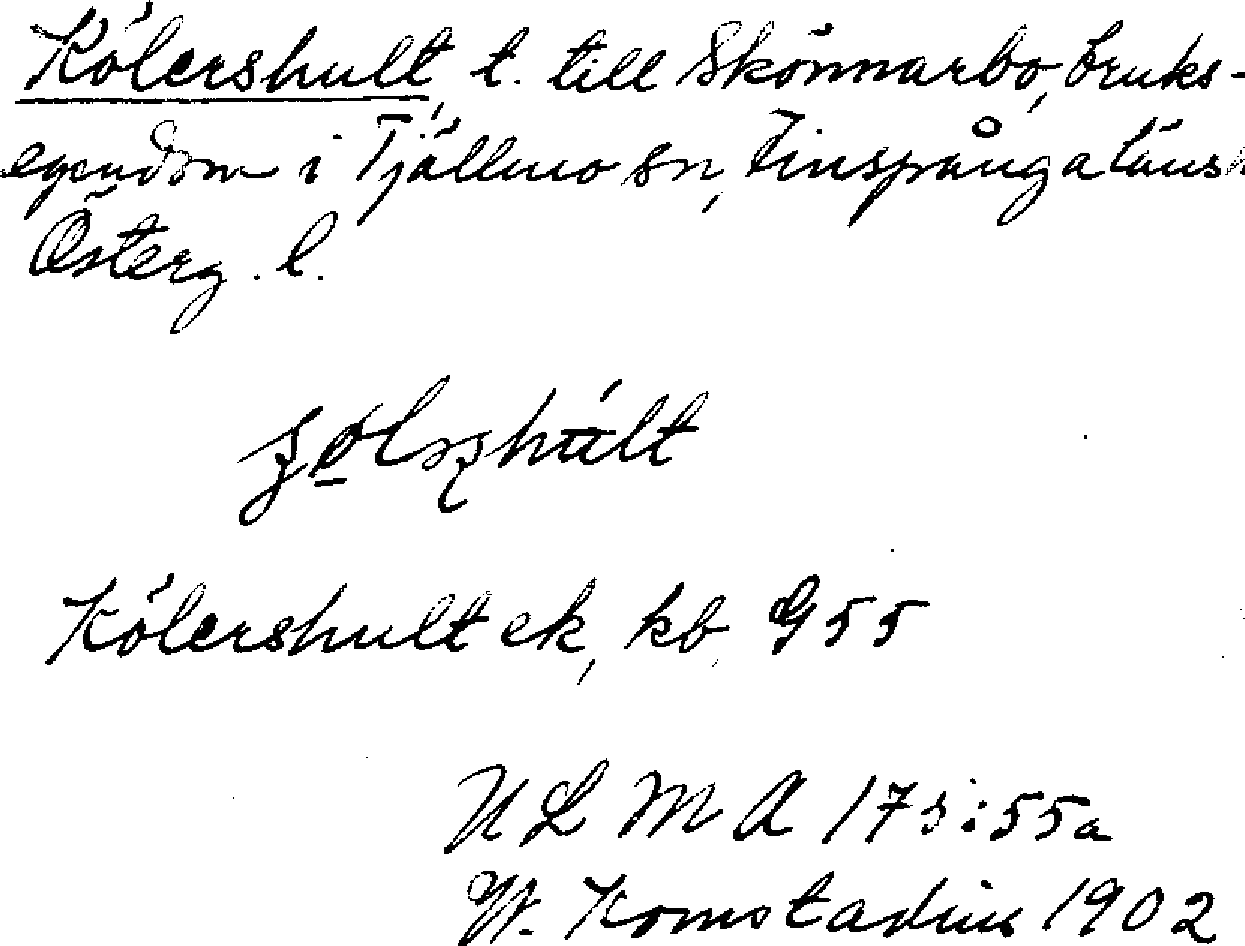 Kölershult, t. till Skönnarbo, bruks-
egendom i Tjällmo sn, Finspånga läns
Österg. l.
Kölershult ek, kb G 55
ULMA 173:55a
W. Komstadius 1902